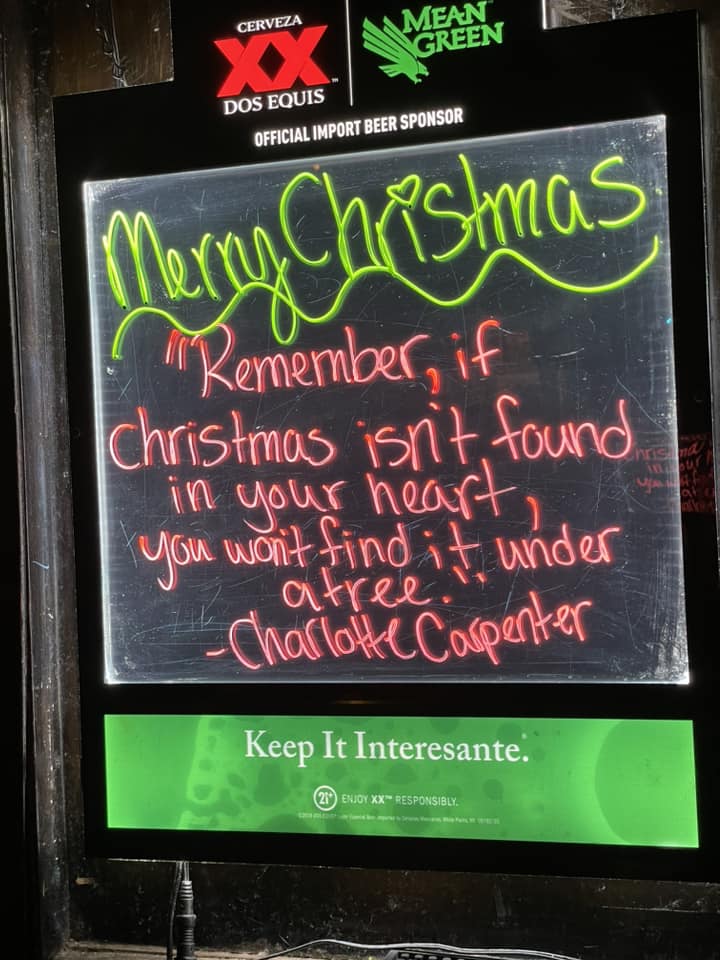 CERVEZA
XX™
DOS EQUIS
MEAN
GREEN
OFFICIAL IMPORT BEER SPONSOR
Merry Christmas
"Remember, if
Christmas isn't found
in your heart,
you won't find it under
a tree."
-Charlotte Carpenter
Keep It Interesante.®
21+ ENJOY XX™ RESPONSIBLY.